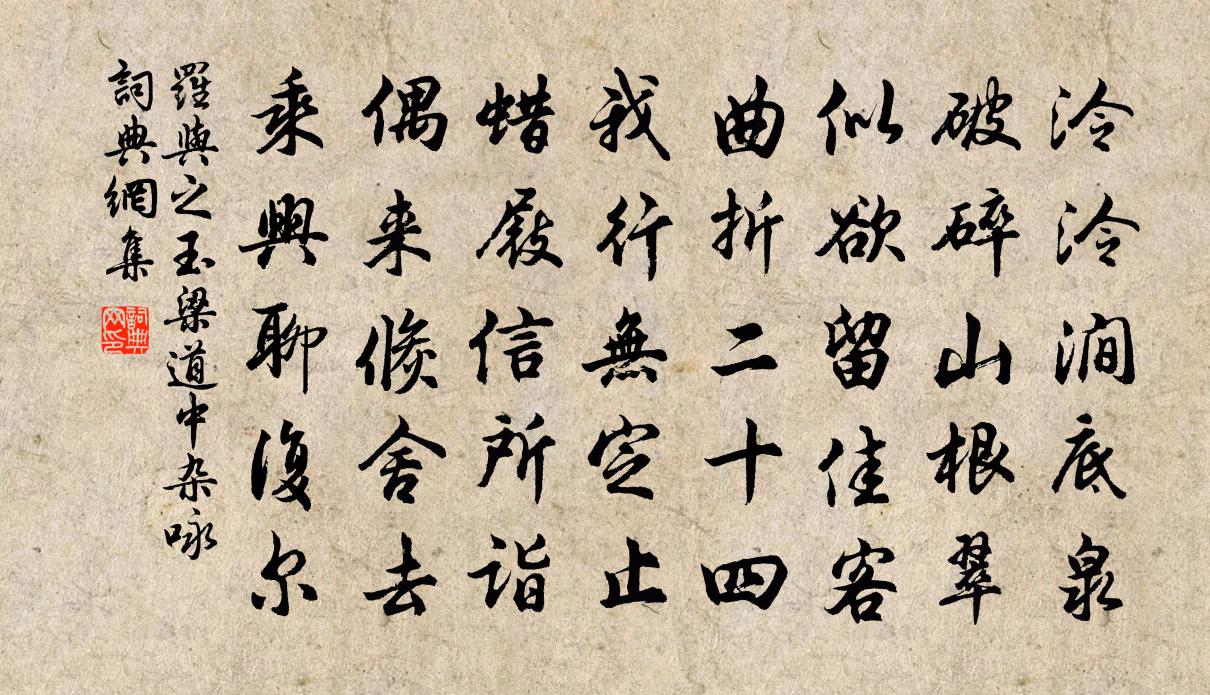 泠泠涧底泉
破碎山根翠
似欲留佳客
曲折二十四
我行無定止
蜡屐信所诣
偶来倐舍去
乘興聊復尔
羅與之玉梁道中杂咏
詞典網集
詞典网印